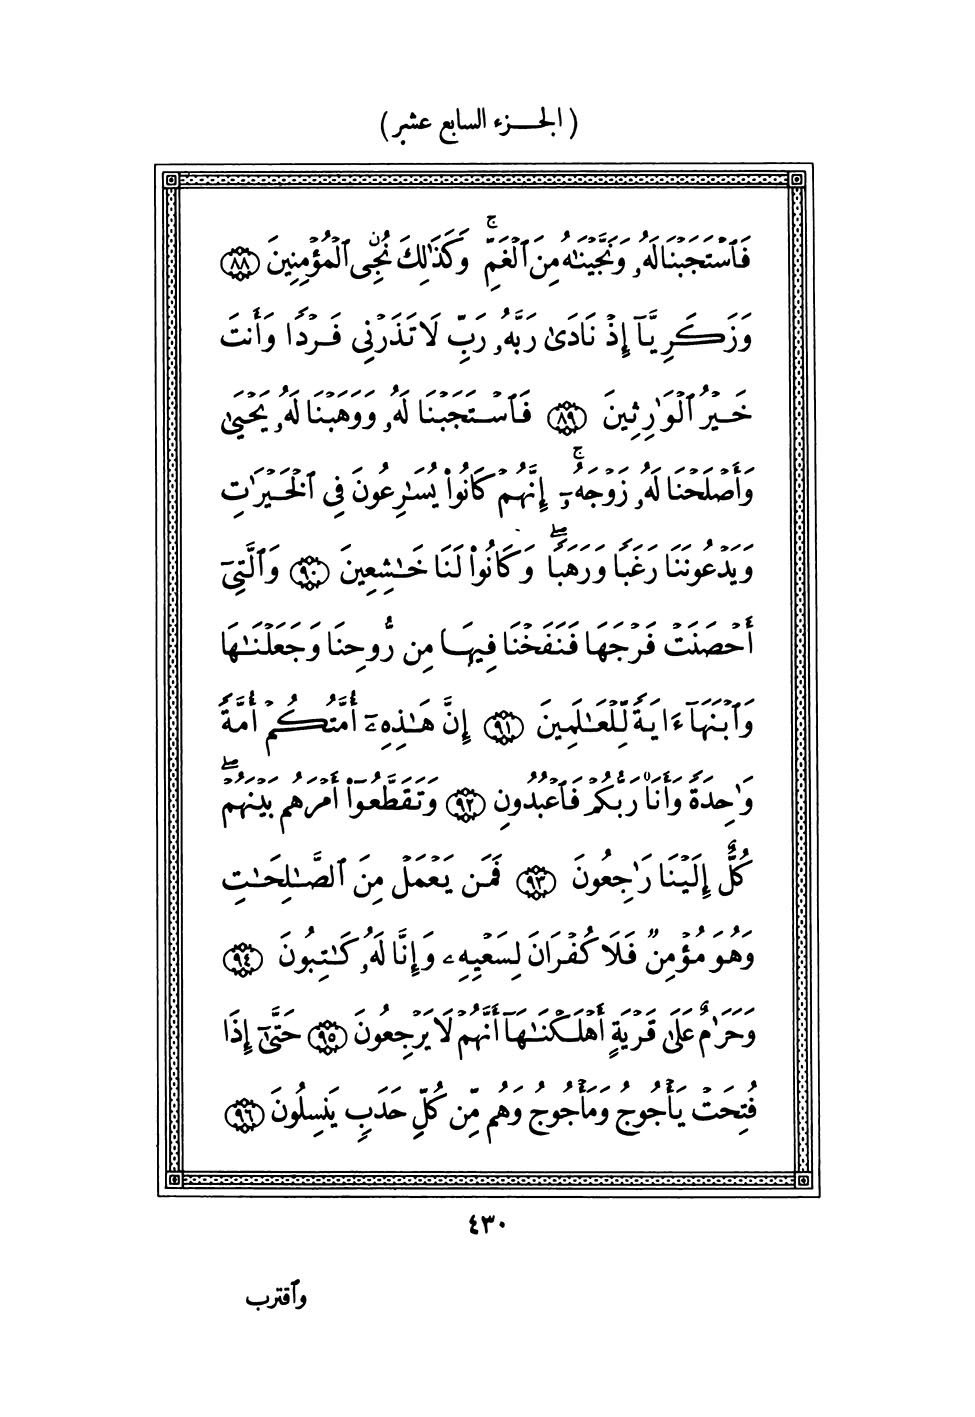 ( الجـــزء السابع عشر )
فَٱسْتَجَبْنَا لَهُۥ وَنَجَّيْنَـٰهُ مِنَ ٱلْغَمِّ ۚ وَكَذَٰلِكَ نُـۨجِى ٱلْمُؤْمِنِينَ ٨٨
وَزَكَرِيَّآ إِذْ نَادَىٰ رَبَّهُۥ رَبِّ لَا تَذَرْنِى فَرْدًا وَأَنتَ
خَيْرُ ٱلْوَٰرِثِينَ ٨٩ فَٱسْتَجَبْنَا لَهُۥ وَوَهَبْنَا لَهُۥ يَحْيَىٰ
وَأَصْلَحْنَا لَهُۥ زَوْجَهُۥٓ ۚ إِنَّهُمْ كَانُوا۟ يُسَـٰرِعُونَ فِى ٱلْخَيْرَٰتِ
وَيَدْعُونَنَا رَغَبًا وَرَهَبًا ۖ وَكَانُوا۟ لَنَا خَـٰشِعِينَ ٩٠ وَٱلَّتِىٓ
أَحْصَنَتْ فَرْجَهَا فَنَفَخْنَا فِيهَا مِن رُّوحِنَا وَجَعَلْنَـٰهَا
وَٱبْنَهَآ ءَايَةً لِّلْعَـٰلَمِينَ ٩١ إِنَّ هَـٰذِهِۦٓ أُمَّتُكُمْ أُمَّةً
وَٰحِدَةً وَأَنَا۠ رَبُّكُمْ فَٱعْبُدُونِ ٩٢ وَتَقَطَّعُوٓا۟ أَمْرَهُم بَيْنَهُمْ ۖ
كُلٌّ إِلَيْنَا رَٰجِعُونَ ٩٣ فَمَن يَعْمَلْ مِنَ ٱلصَّـٰلِحَـٰتِ
وَهُوَ مُؤْمِنٌ فَلَا كُفْرَانَ لِسَعْيِهِۦ وَإِنَّا لَهُۥ كَـٰتِبُونَ ٩٤
وَحَرَٰمٌ عَلَىٰ قَرْيَةٍ أَهْلَكْنَـٰهَآ أَنَّهُمْ لَا يَرْجِعُونَ ٩٥ حَتَّىٰٓ إِذَا
فُتِحَتْ يَأْجُوجُ وَمَأْجُوجُ وَهُم مِّن كُلِّ حَدَبٍ يَنسِلُونَ ٩٦
٤٣٠
وٱقترب